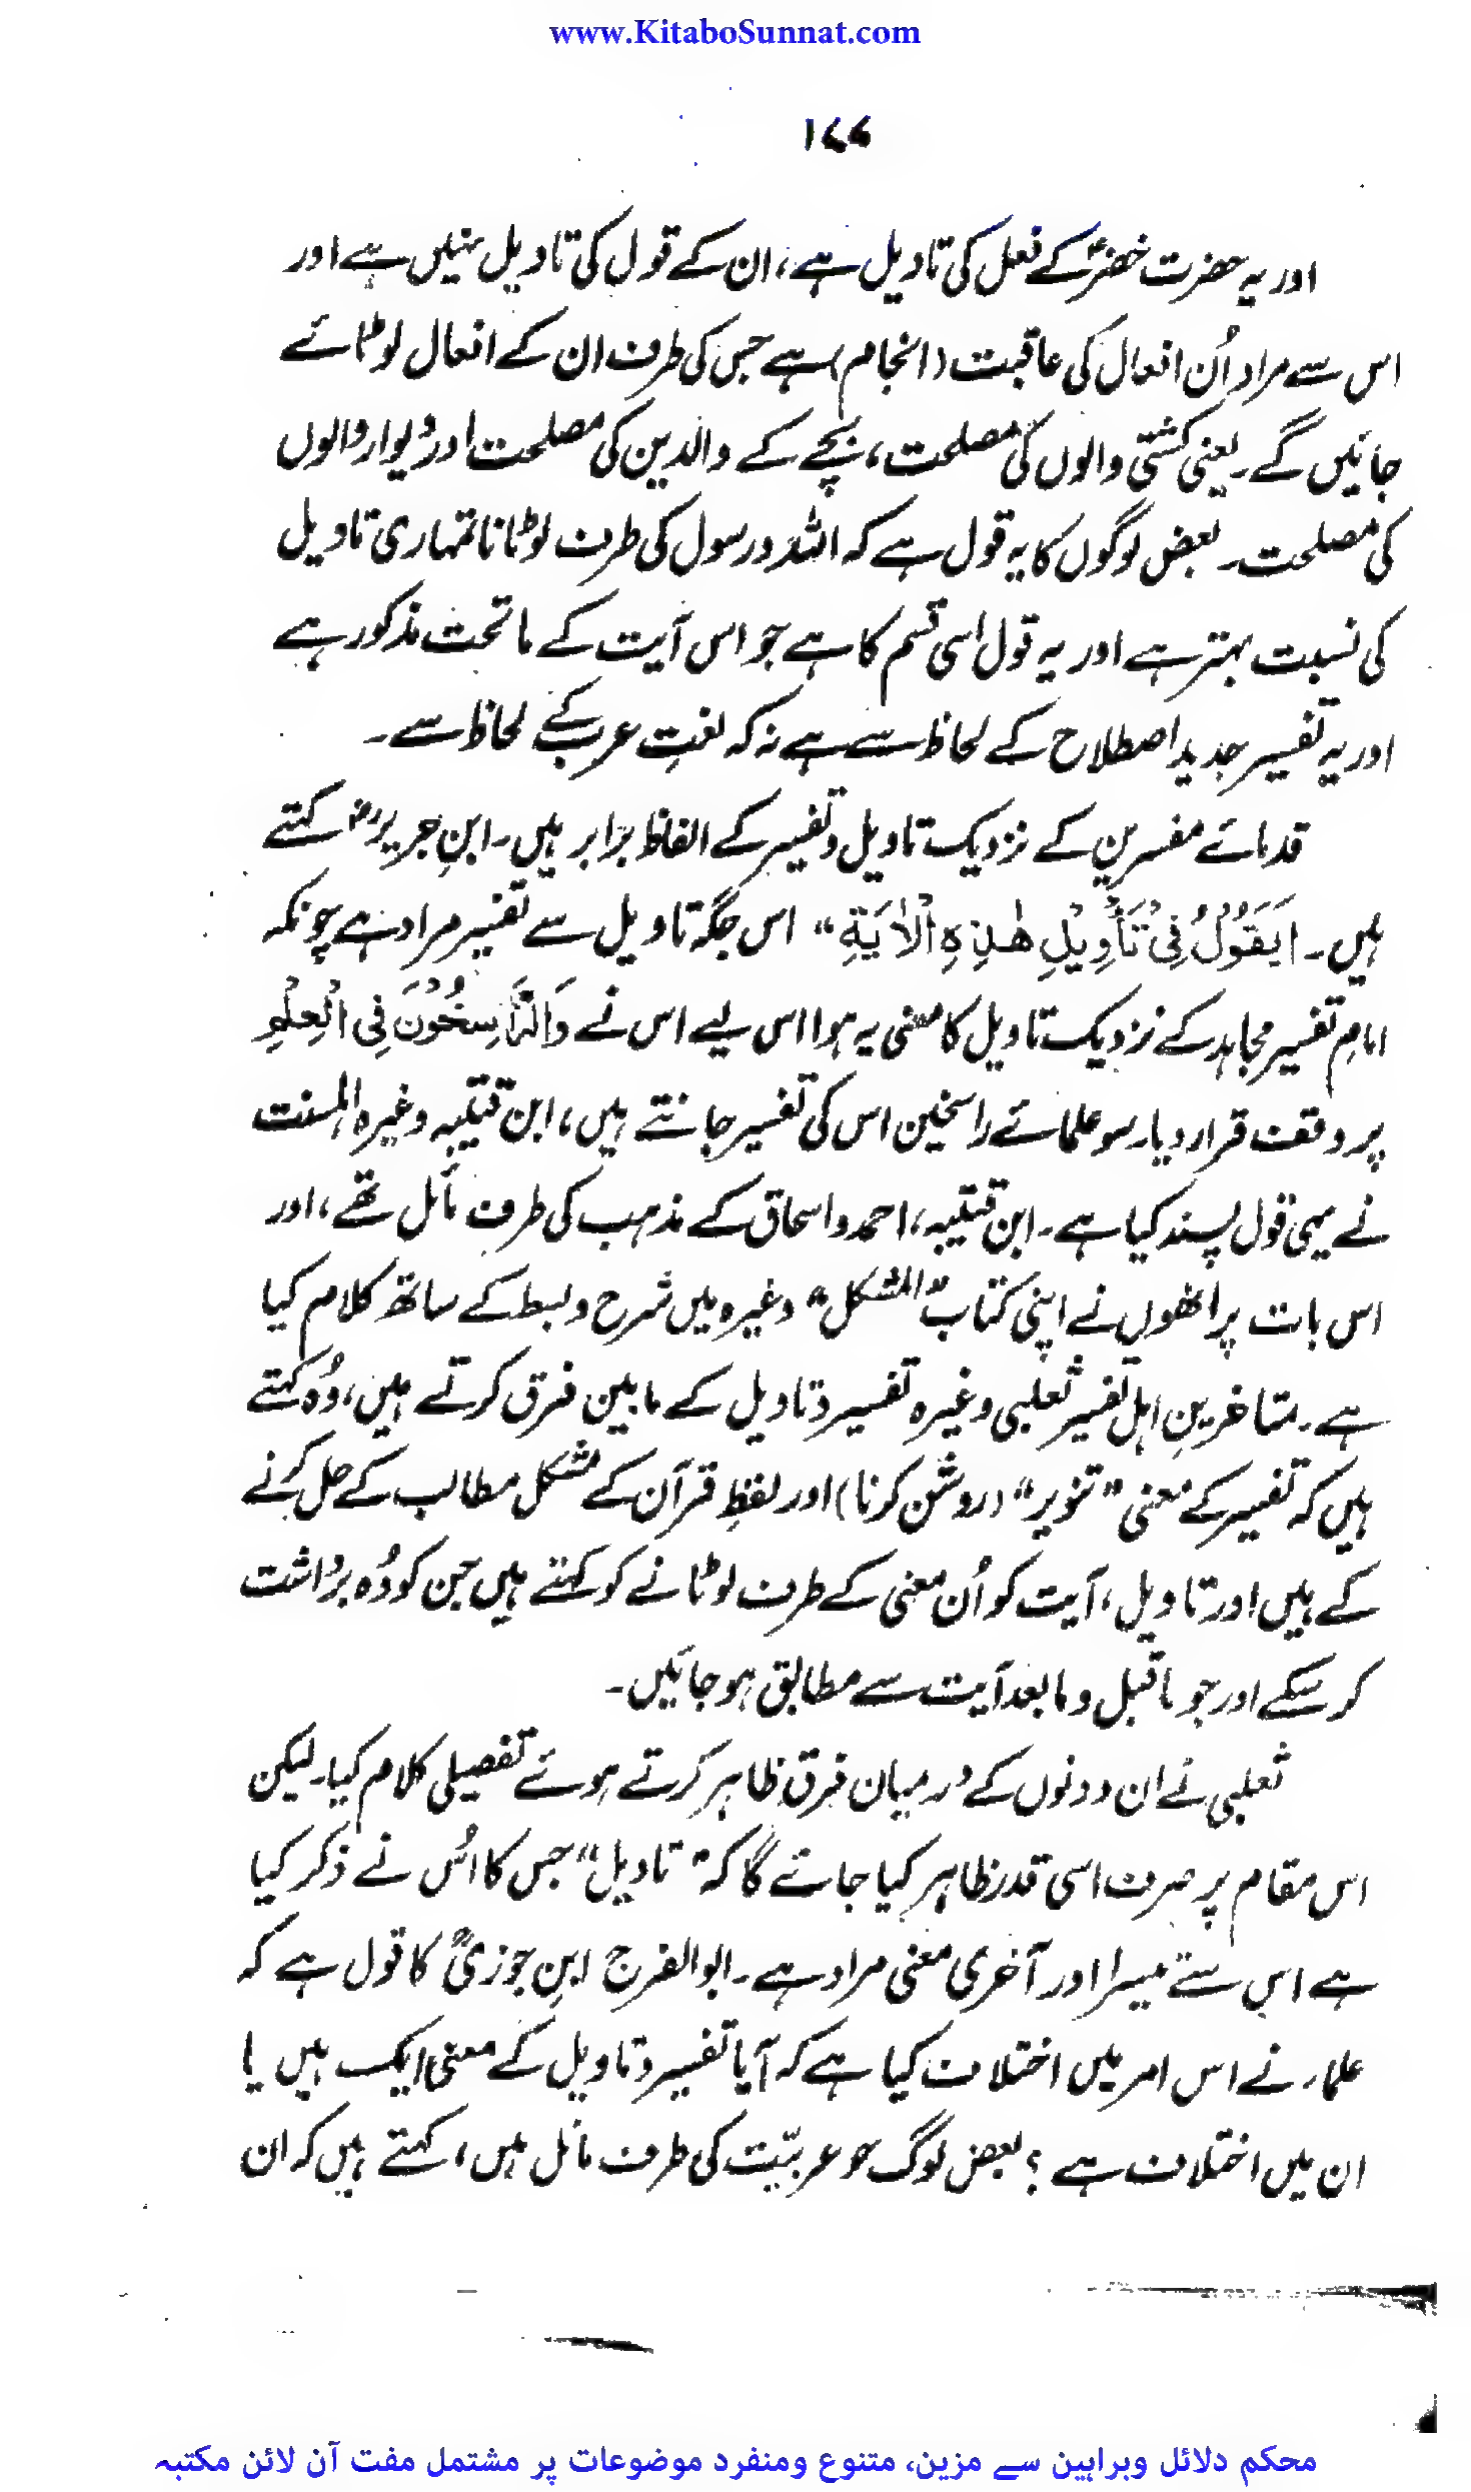 www.KitaboSunnat.com
۱۷۶
اور یہ حضرت خضرؑ کے فعل کی تاویل ہے، ان کے قول کی تاویل نہیں ہے اور
اس سے مراد اُن افعال کی عاقبت (انجام) ہے جس کی طرف ان کے افعال لوٹائے
جائیں گے۔ یعنی کشتی والوں کی مصلحت، بچے کے والدین کی مصلحت اور دیوار والوں
کی مصلحت۔ بعض لوگوں کا یہ قول ہے کہ اللہ و رسول کی طرف لوٹانا تمہاری تاویل
کی نسبت بہتر ہے اور یہ قول اسی قسم کا ہے جو اس آیت کے ماتحت مذکور ہے
اور یہ تفسیر جدید اصطلاح کے لحاظ سے ہے نہ کہ لغتِ عرب کے لحاظ سے۔
قدمائے مفسرین کے نزدیک تاویل و تفسیر کے الفاظ برابر ہیں۔ ابنِ جریرؒ کہتے
ہیں۔ اَیَقُوْلُ فِیْ تَأْوِیْلِ ھٰذِہِ الْاٰیَةِ“ اس جگہ تاویل سے تفسیر مراد ہے چونکہ
امامِ تفسیر مجاہد کے نزدیک تاویل کا معنی یہ ہوا اس لیے اس نے وَالرَّاسِخُوْنَ فِی الْعِلْمِ
پر وقف قرار دیا۔ سو علمائے راسخین اس کی تفسیر جانتے ہیں، ابن قتیبہ وغیرہ اہلسنت
نے یہی قول پسند کیا ہے۔ ابن قتیبہ، احمد و اسحاق کے مذہب کی طرف مائل تھے، اور
اس بات پر انھوں نے اپنی کتاب ”المشکل“ وغیرہ میں شرح و بسط کے ساتھ کلام کیا
ہے۔ متاخرینِ اہل تفسیر ثعلبی وغیرہ تفسیر و تاویل کے مابین فرق کرتے ہیں، وُہ کہتے
ہیں کہ تفسیر کے معنی ”تنویر“ (روشن کرنا) اور لفظِ قرآن کے مشکل مطالب کے حل کرنے
کے ہیں اور تاویل، آیت کو اُن معنی کے طرف لوٹانے کو کہتے ہیں جن کو وُہ برداشت
کر سکے اور جو ماقبل و مابعد آیت سے مطابق ہو جائیں۔
ثعلبی نے ان دونوں کے درمیان فرق ظاہر کرتے ہوئے تفصیلی کلام کیا۔ لیکن
اس مقام پر صرف اسی قدر ظاہر کیا جائے گا کہ ”تاویل“ جس کا اُس نے ذکر کیا
ہے اس سے تیسرا اور آخری معنی مراد ہے۔ ابوالفرج ابنِ جوزیؒ کا قول ہے کہ
علماء نے اس امر میں اختلاف کیا ہے کہ آیا تفسیر و تاویل کے معنی ایک ہیں یا
ان میں اختلاف ہے؟ بعض لوگ جو عربیّت کی طرف مائل ہیں، کہتے ہیں کہ ان
محکم دلائل وبراہین سے مزین، متنوع ومنفرد موضوعات پر مشتمل مفت آن لائن مکتبہ